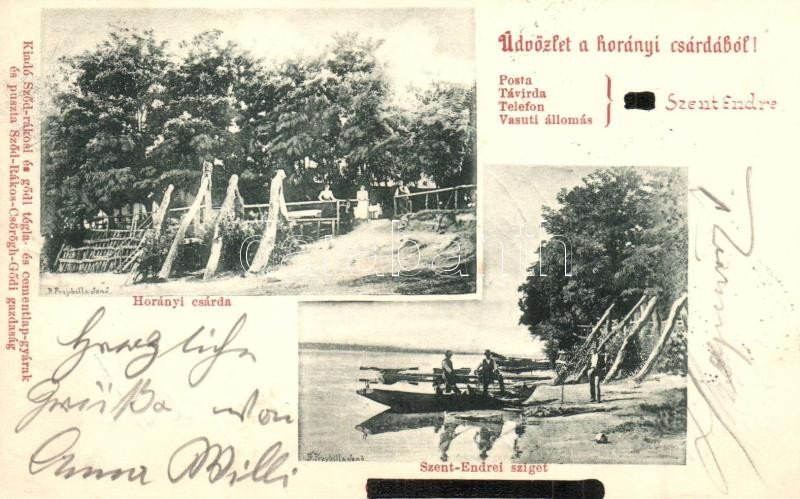 Üdvözlet a horányi csárdából!
Posta
Távirda
Telefon
Vasuti állomás
Szent Endre
Kiadó Sződ-rákosi és gődi tégla- és cementlap-gyárak
és puszta Sződ-Rákos-Csörögh-Gődi gazdaság
Horányi csárda
darabanth
Szent-Endrei sziget
Herzliche
Grüße von
Anna Willi